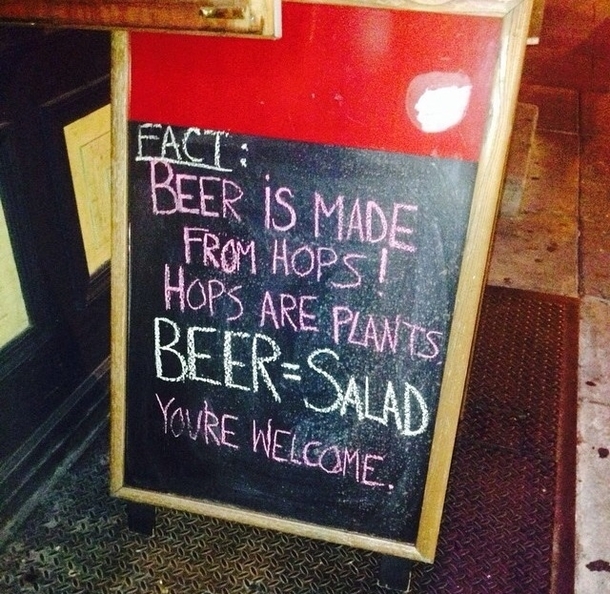 FACT:
BEER iS MADE
FROM HOPS!
HOPS ARE PLANTS
BEER=SALAD
YOU'RE WELCOME.